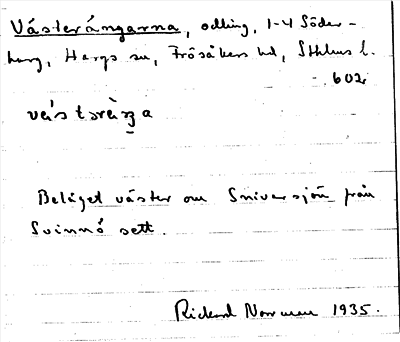 Västerängarna, odling, 1-4 Söder-
berg, Hargs sn, Frösåkers hd, Sthlms l.
- 602
Beläget väster om Sniversjön från
Svinnö sett.
Rickard Norrman 1935.